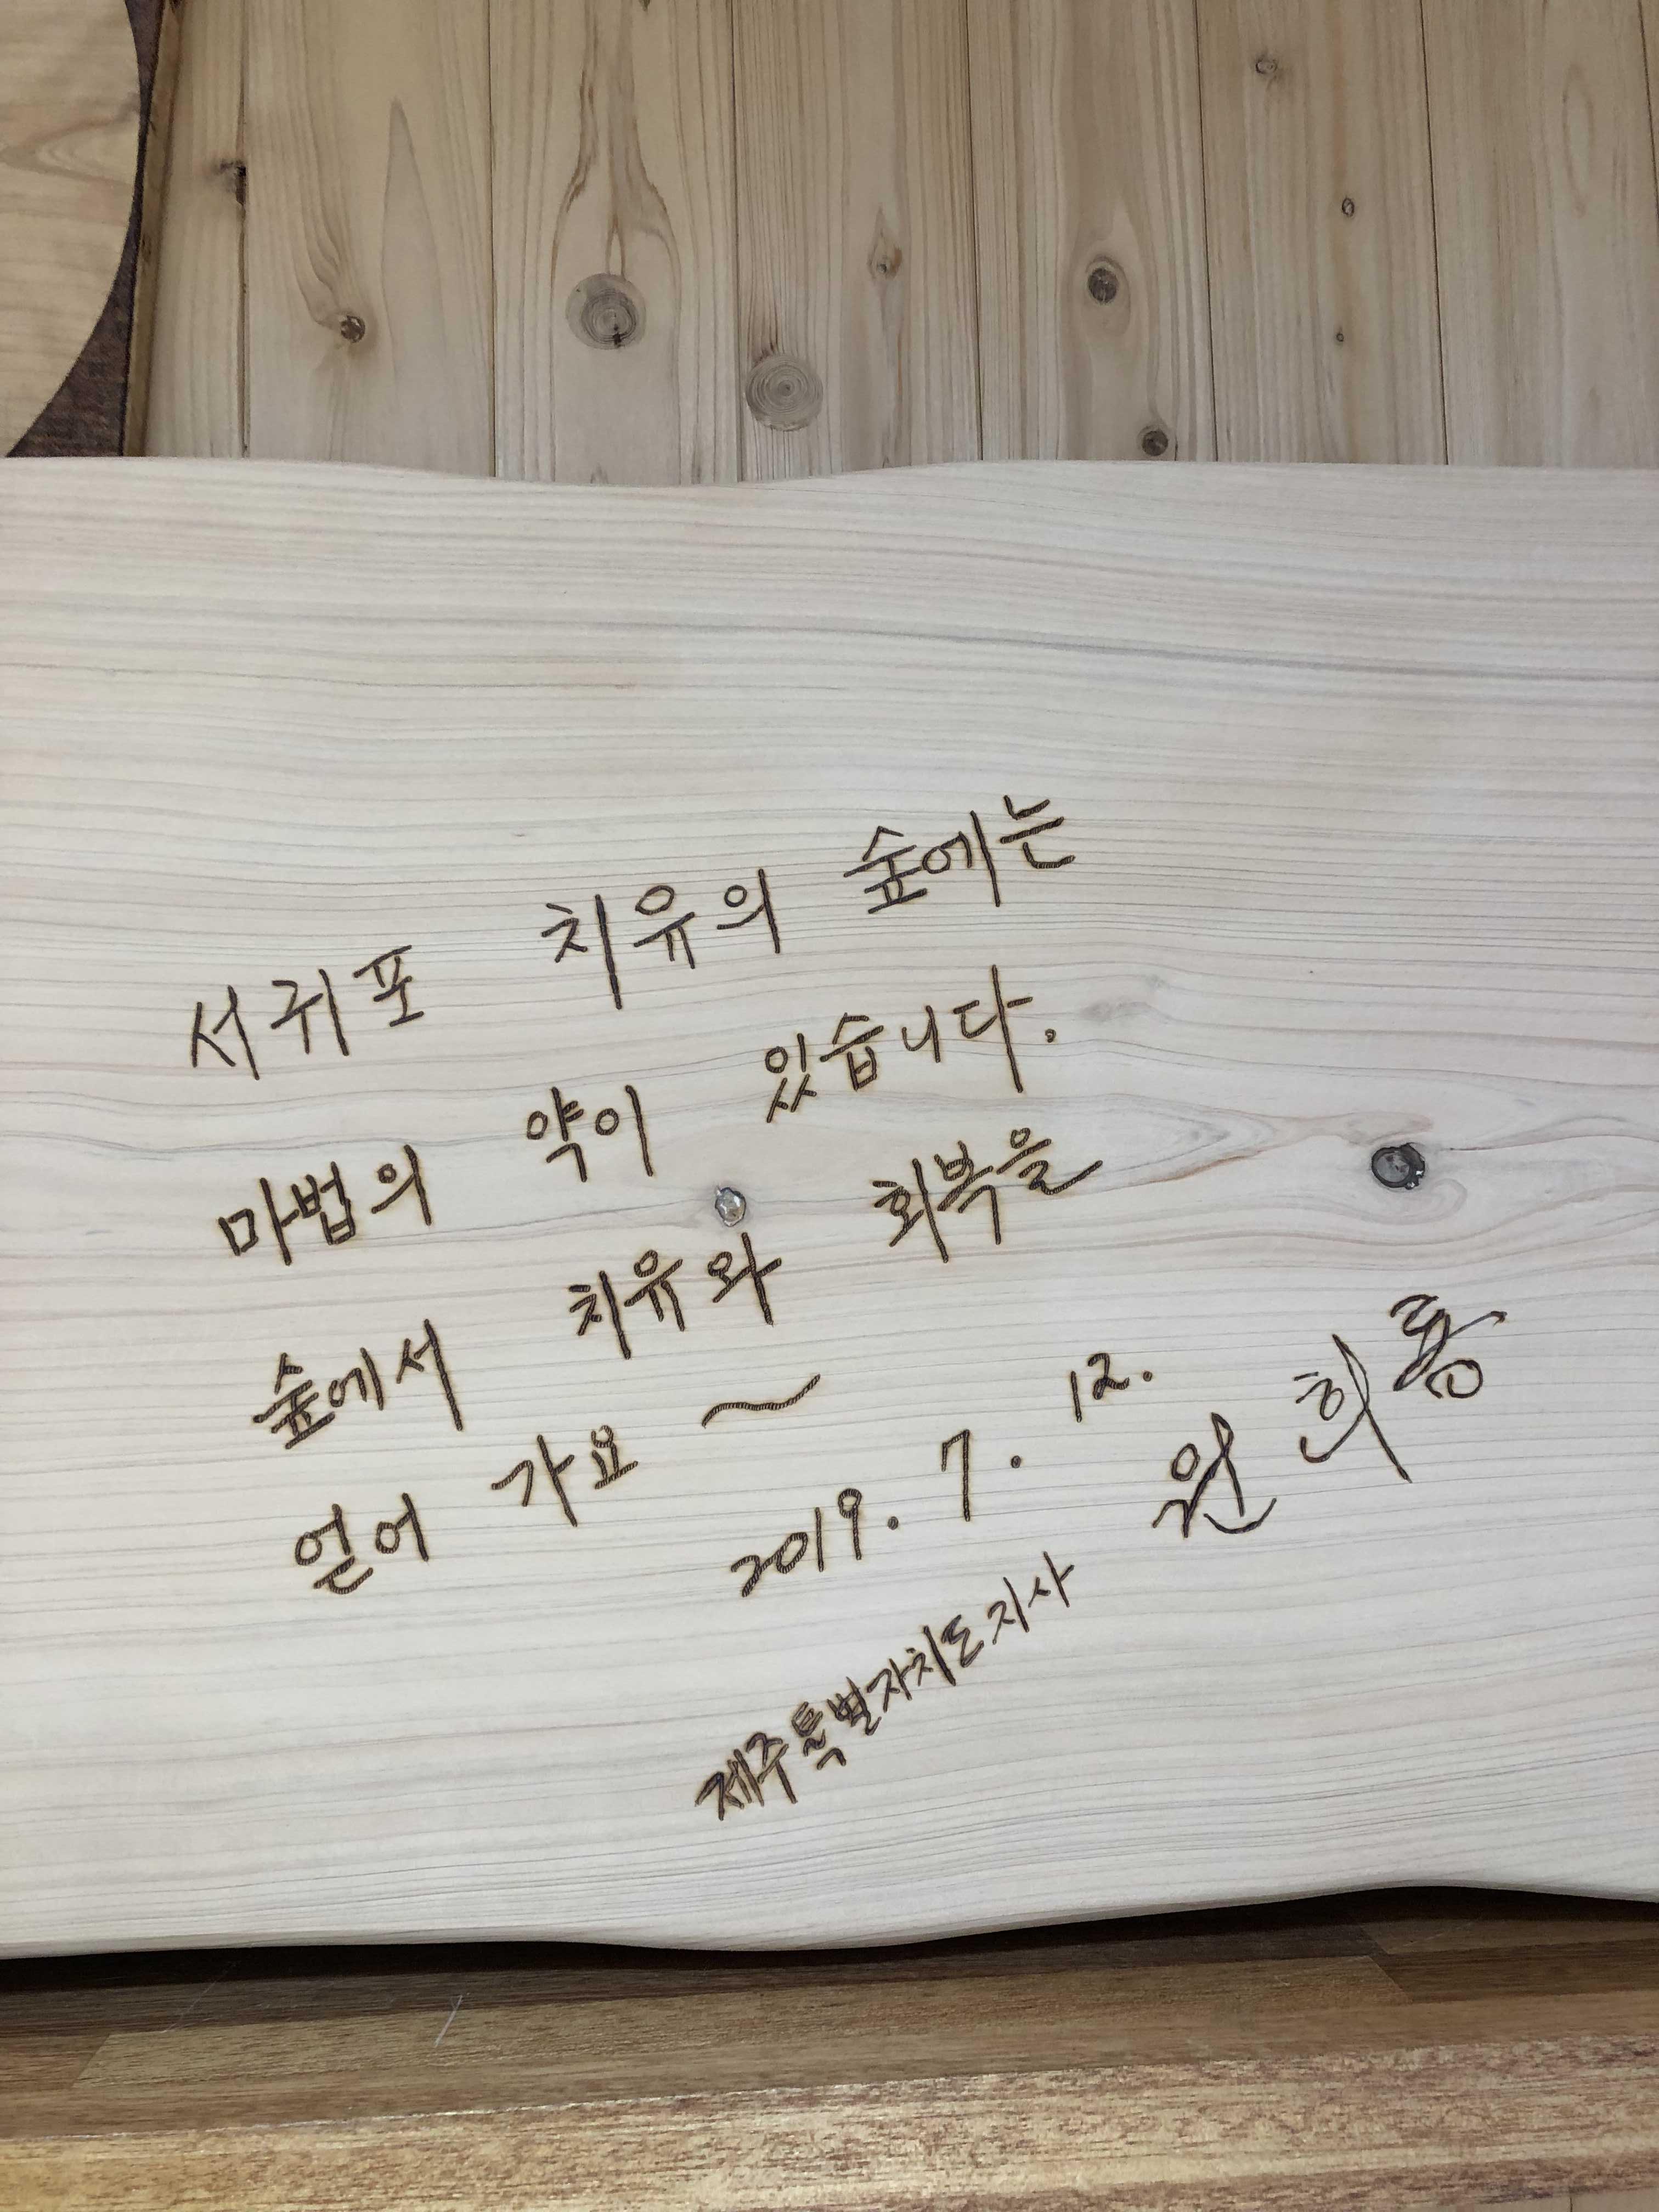 서귀포 치유의 숲에는
마법의 약이 있습니다.
숲에서 치유와 회복을
얻어 가요~
2019. 7. 12.
제주특별자치도지사 원희룡